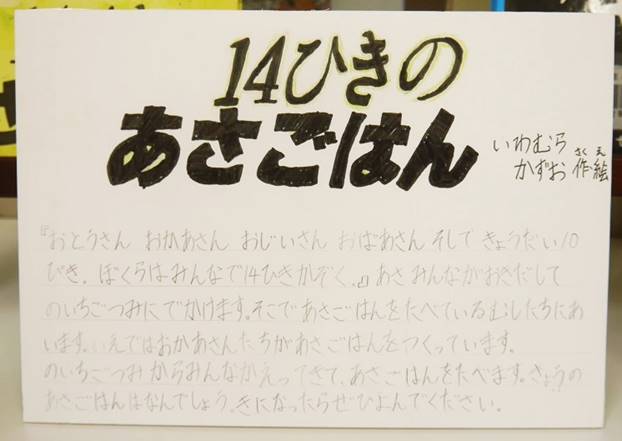 14ひきの
あさごはん
いわむら
かずお 作絵
さく え
『おとうさん おかあさん おじいさん おばあさん そして きょうだい10
ぴき。ぼくらはみんなで14ひきかぞく。』あさ みんながおきだして
のいちごつみにでかけます。そこであさごはんをたべているむしたちにあ
います。いえではおかあさんたちがあさごはんをつくっています。
のいちごつみからみんなかえってきて、あさごはんをたべます。きょうの
あさごはんはなんでしょう。きになったらぜひよんでください。